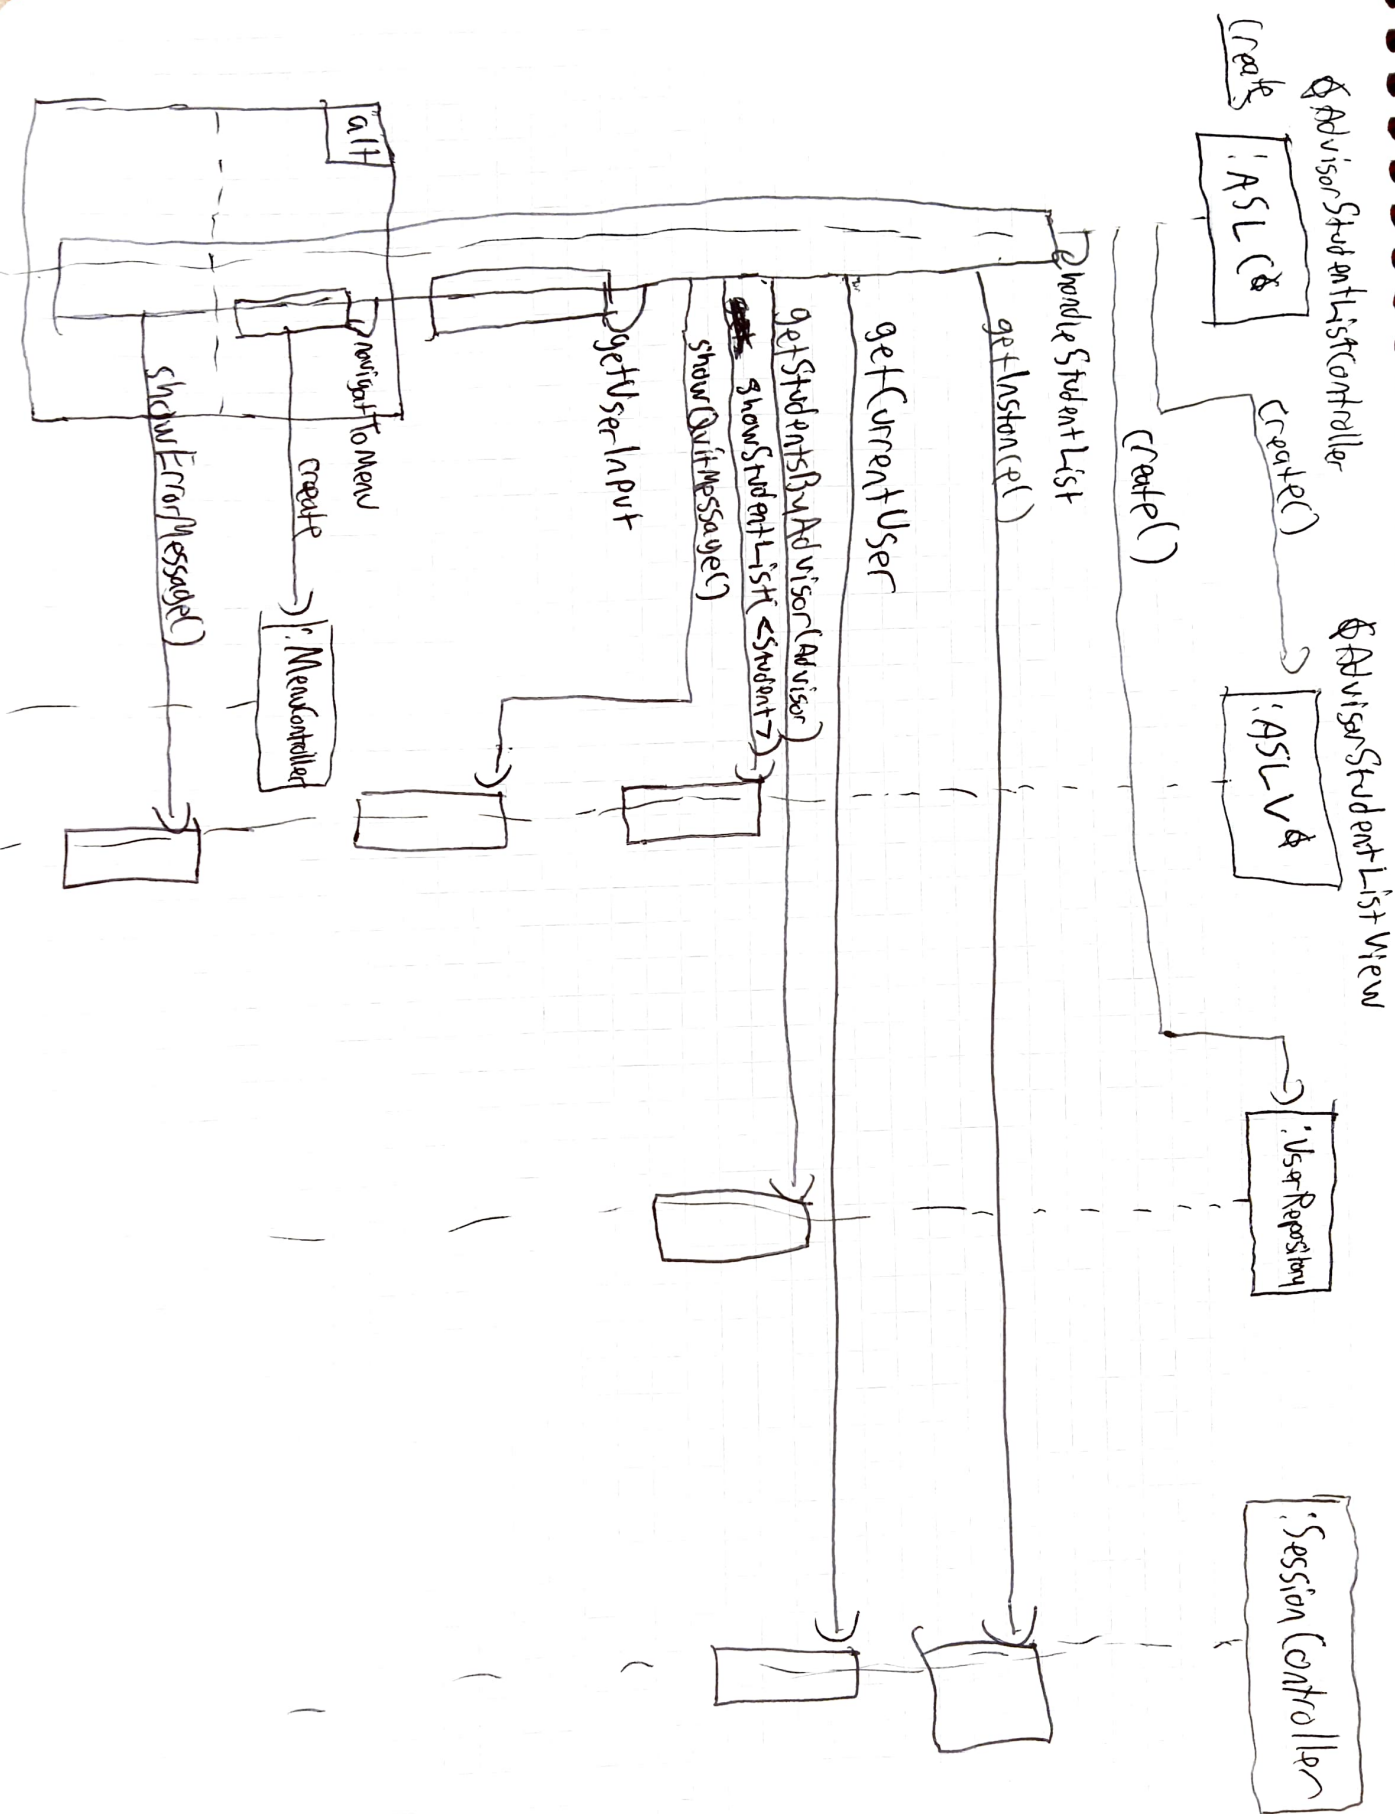 AdvisorStudentListController
AdvisorStudentListView
Create
:ASLC
:ASLV
:UserRepository
:SessionController
create()
create()
handleStudentList
getInstance()
getCurrentUser
getStudentsByAdvisor(Advisor)
showStudentList(<Student>)
showQuitMessage()
getUserInput
alt
navigatToMenu
create
:MenuController
showErrorMessage()